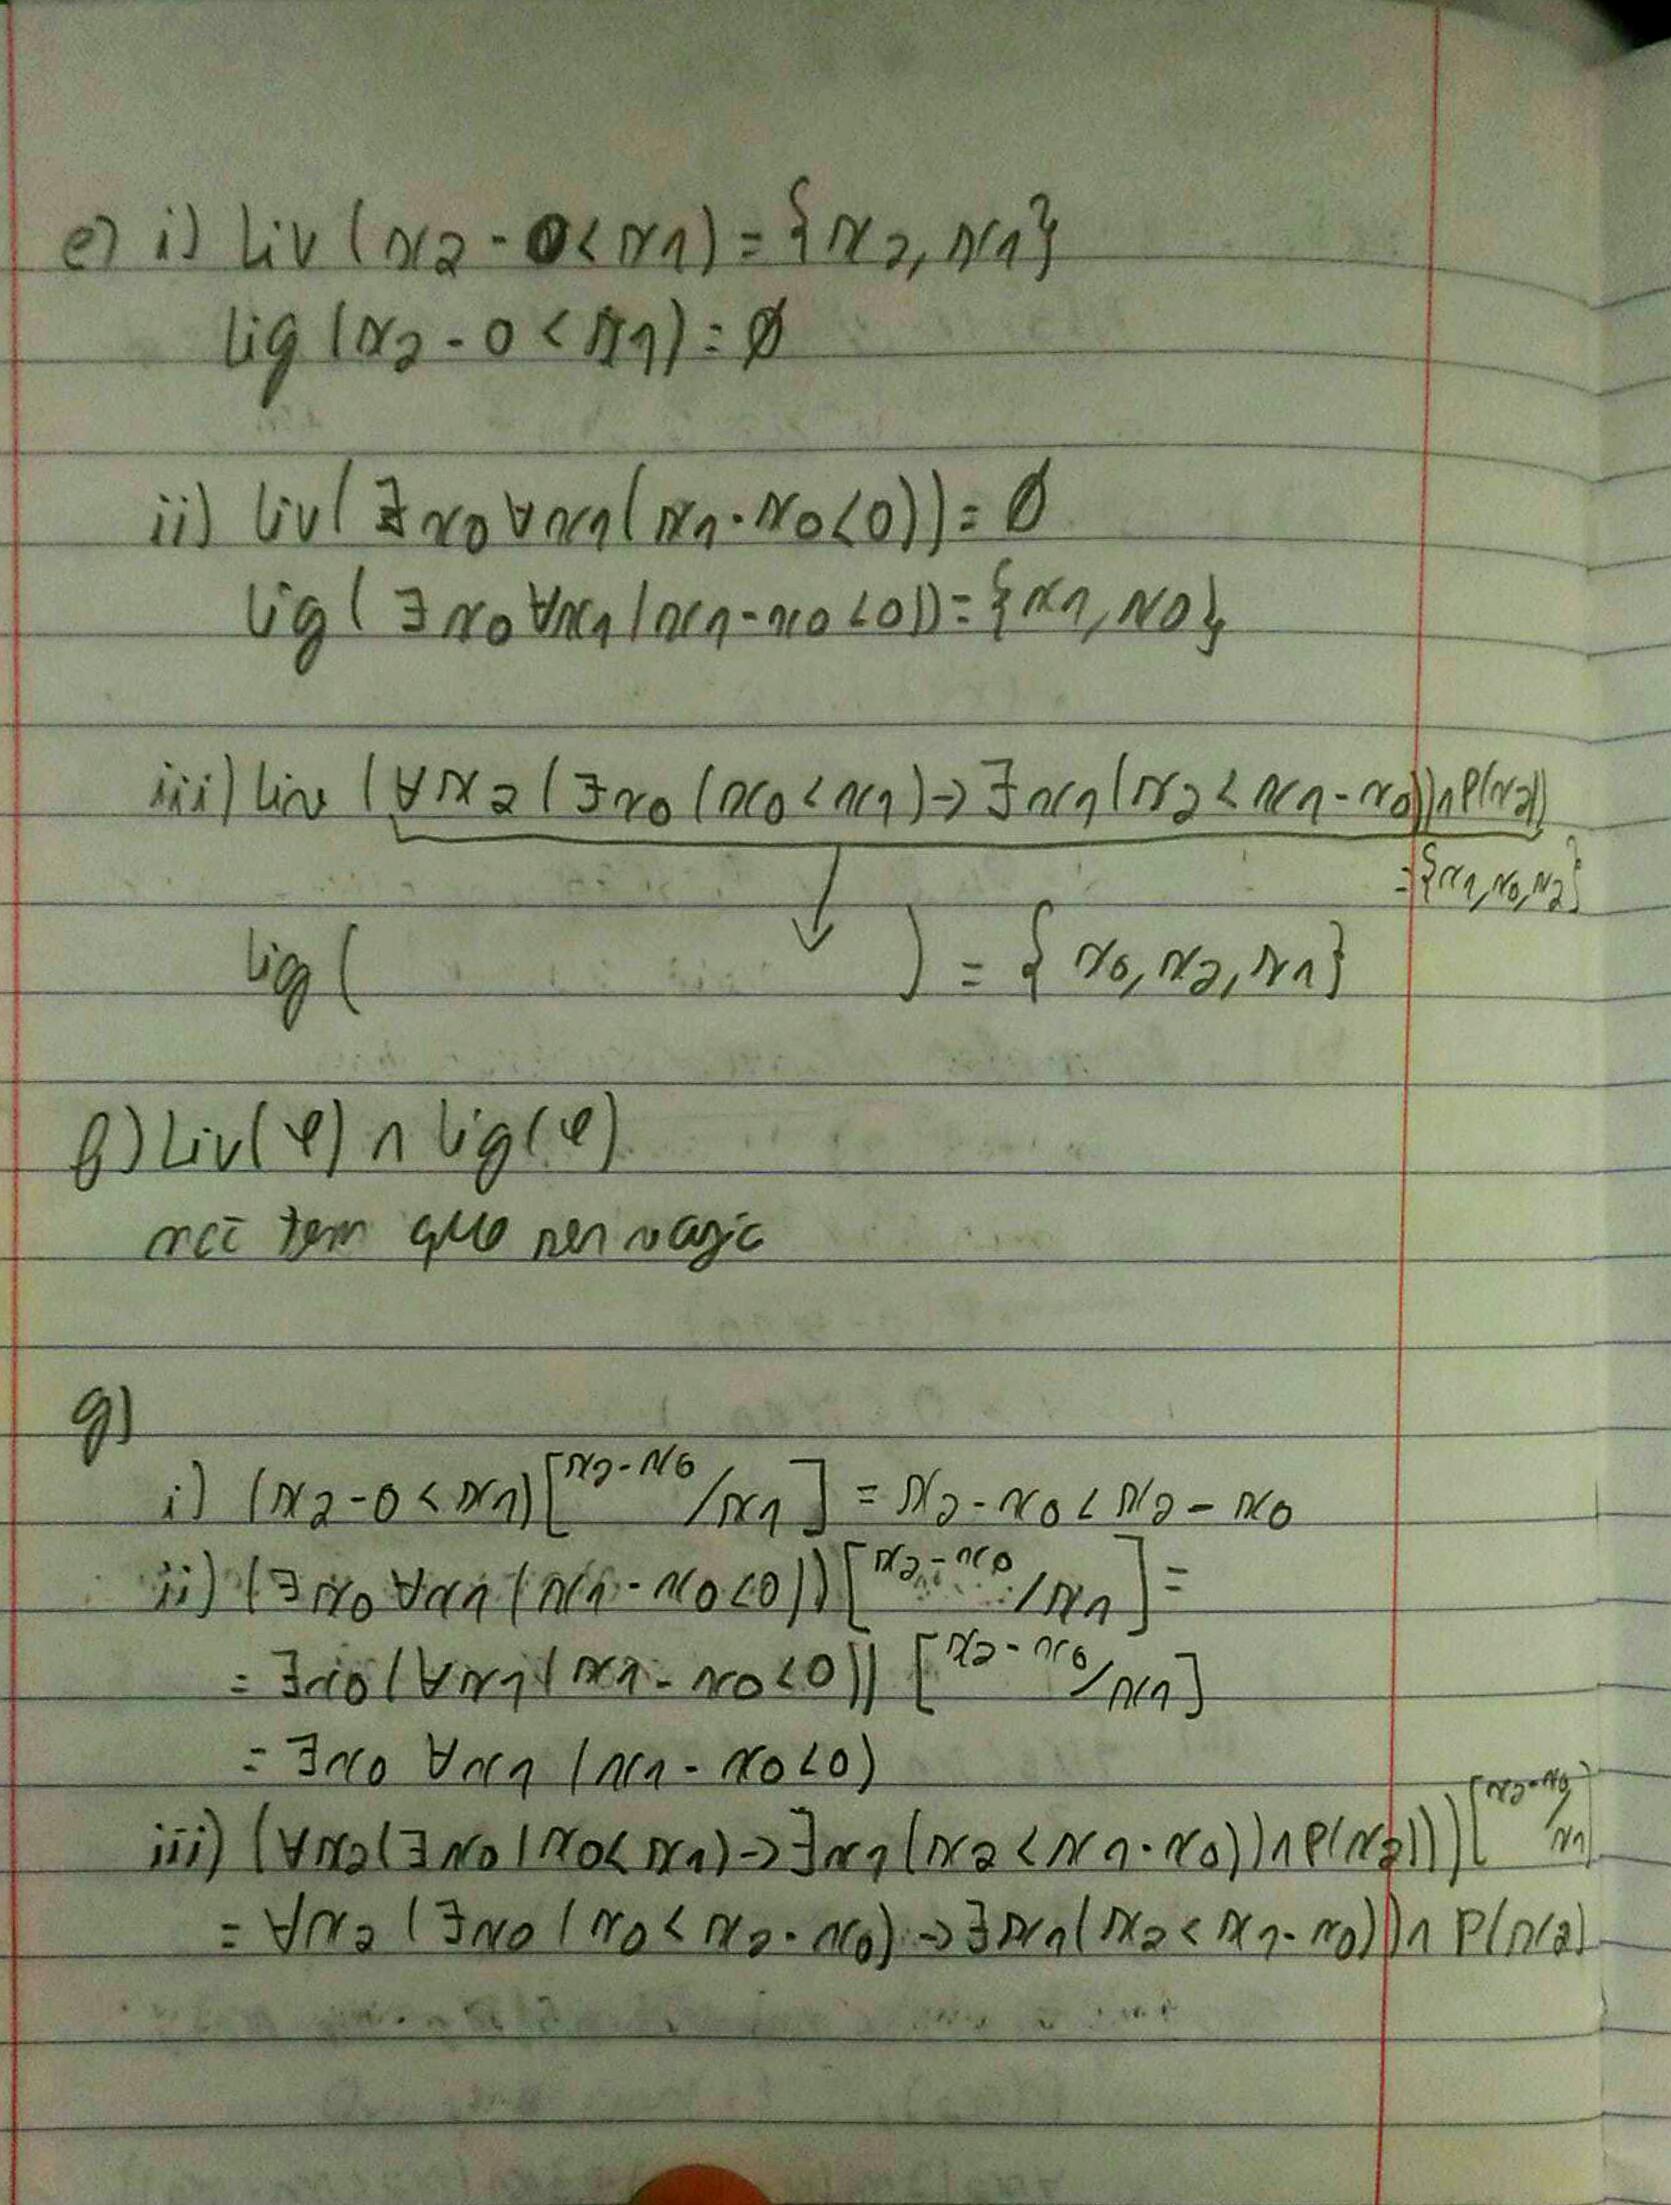 e) i) Liv (x2 - 0 < x1) = {x2, x1}
Lig (x2 - 0 < x1) = ∅
ii) Liv (∃x0 ∀x1 (x1 - x0 < 0)) = ∅
Lig (∃x0 ∀x1 (x1 - x0 < 0)) = {x1, x0}
iii) Liv (∀x2 (∃x0 (x0 < x1) → ∃x1 (x2 < x1 - x0)) ∧ P(x2))
= {x1, x0, x2}
Lig ( ) = {x0, x2, x1}
f) Liv(φ) ∩ Lig(φ)
não tem que ser vazio
g)
i) (x2 - 0 < x1) [x2 - x0 / x1] = x2 - x0 < x2 - x0
ii) (∃x0 ∀x1 (x1 - x0 < 0)) [x2 - x0 / x1] =
= ∃x0 (∀x1 (x1 - x0 < 0)) [x2 - x0 / x1]
= ∃x0 ∀x1 (x1 - x0 < 0)
iii) (∀x2 (∃x0 (x0 < x1) → ∃x1 (x2 < x1 - x0)) ∧ P(x2))) [x2 - x0 / x1]
= ∀x2 (∃x0 (x0 < x2 - x0) → ∃x1 (x2 < x1 - x0)) ∧ P(x2)